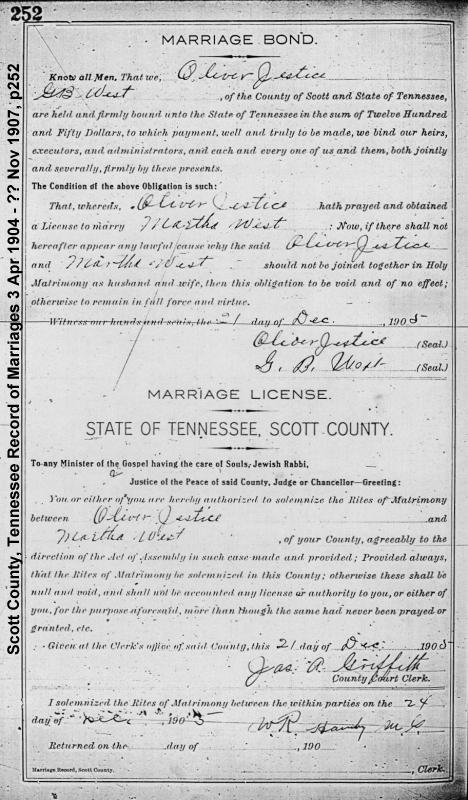 252
Scott County, Tennessee Record of Marriages 3 Apr 1904 - ?? Nov 1907, p252
MARRIAGE BOND.
Know all Men, That we, Oliver Jestice
G B West, of the County of Scott and State of Tennessee,
are held and firmly bound unto the State of Tennessee in the sum of Twelve Hundred
and Fifty Dollars, to which payment, well and truly to be made, we bind our heirs,
executors, and administrators, and each and every one of us and them, both jointly
and severally, firmly by these presents.
The Condition of the above Obligation is such:
That, whereds, Oliver Jestice hath prayed and obtained
a License to marry Martha West : Now, if there shall not
hereafter appear any lawful cause why the said Oliver Jestice
and Martha West should not be joined together in Holy
Matrimony as husband and wife, then this obligation to be void and of no effect;
otherwise to remain in full force and virtue.
Witness our hands and seals, the 21 day of Dec. , 1905
Oliver Jestice (Seal.)
G. B. West (Seal.)
MARRIAGE LICENSE.
STATE OF TENNESSEE, SCOTT COUNTY.
To any Minister of the Gospel having the care of Souls, Jewish Rabbi,
Justice of the Peace of said County, Judge or Chancellor—Greeting:
You or either of you are hereby authorized to solemnize the Rites of Matrimony
between Oliver Jestice and
Martha West , of your County, agreeably to the
direction of the Act of Assembly in such case made and provided; Provided always,
that the Rites of Matrimony be solemnized in this County; otherwise these shall be
null and void, and shall not be accounted any license or authority to you, or either of
you, for the purpose aforesaid, more than though the same had never been prayed or
granted, etc.
Given at the Clerk's office of said County, this 21 day of Dec. 1905
Jas. A. Griffith
County Court Clerk.
I solemnized the Rites of Matrimony between the within parties on the 24
day of Dec. 1905 W R M G
Returned on the day of , 190
Marriage Record, Scott County. , Clerk.